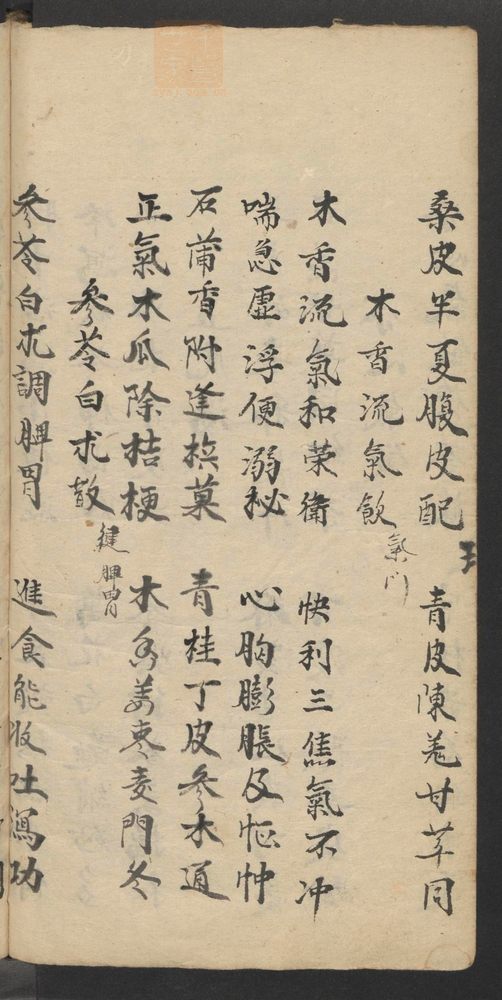 桑皮半夏腹皮配 青皮陳羗甘草同
木香流氣飲 氣門
木香流氣和荣衛 快利三焦氣不冲
喘急虛浮便溺秘 心胸膨脹及怔忡
石蒲香附逢梹菓 青桂丁皮参木通
正氣木瓜除桔梗 木香姜枣麦門冬
參苓白朮散 健脾胃
參苓白朮調脾胃 進食能收吐瀉功